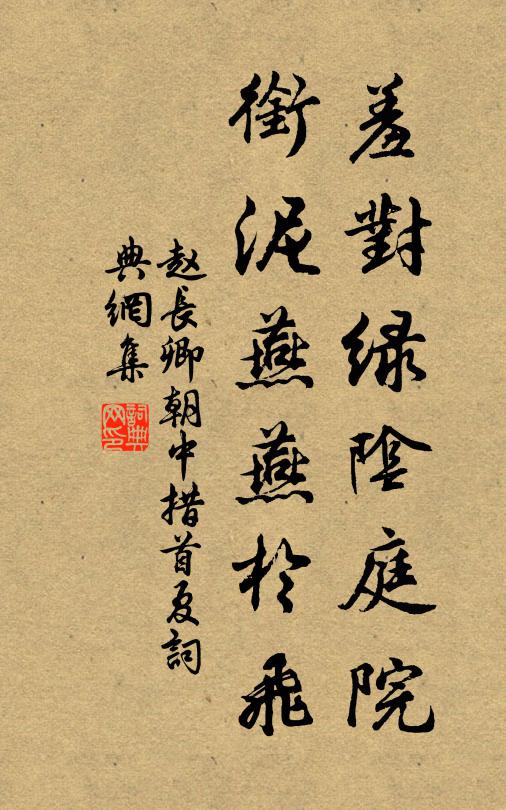 羞對綠陰庭院
銜泥燕燕於飛
赵長卿朝中措首夏詞
典網集
詞典
网印